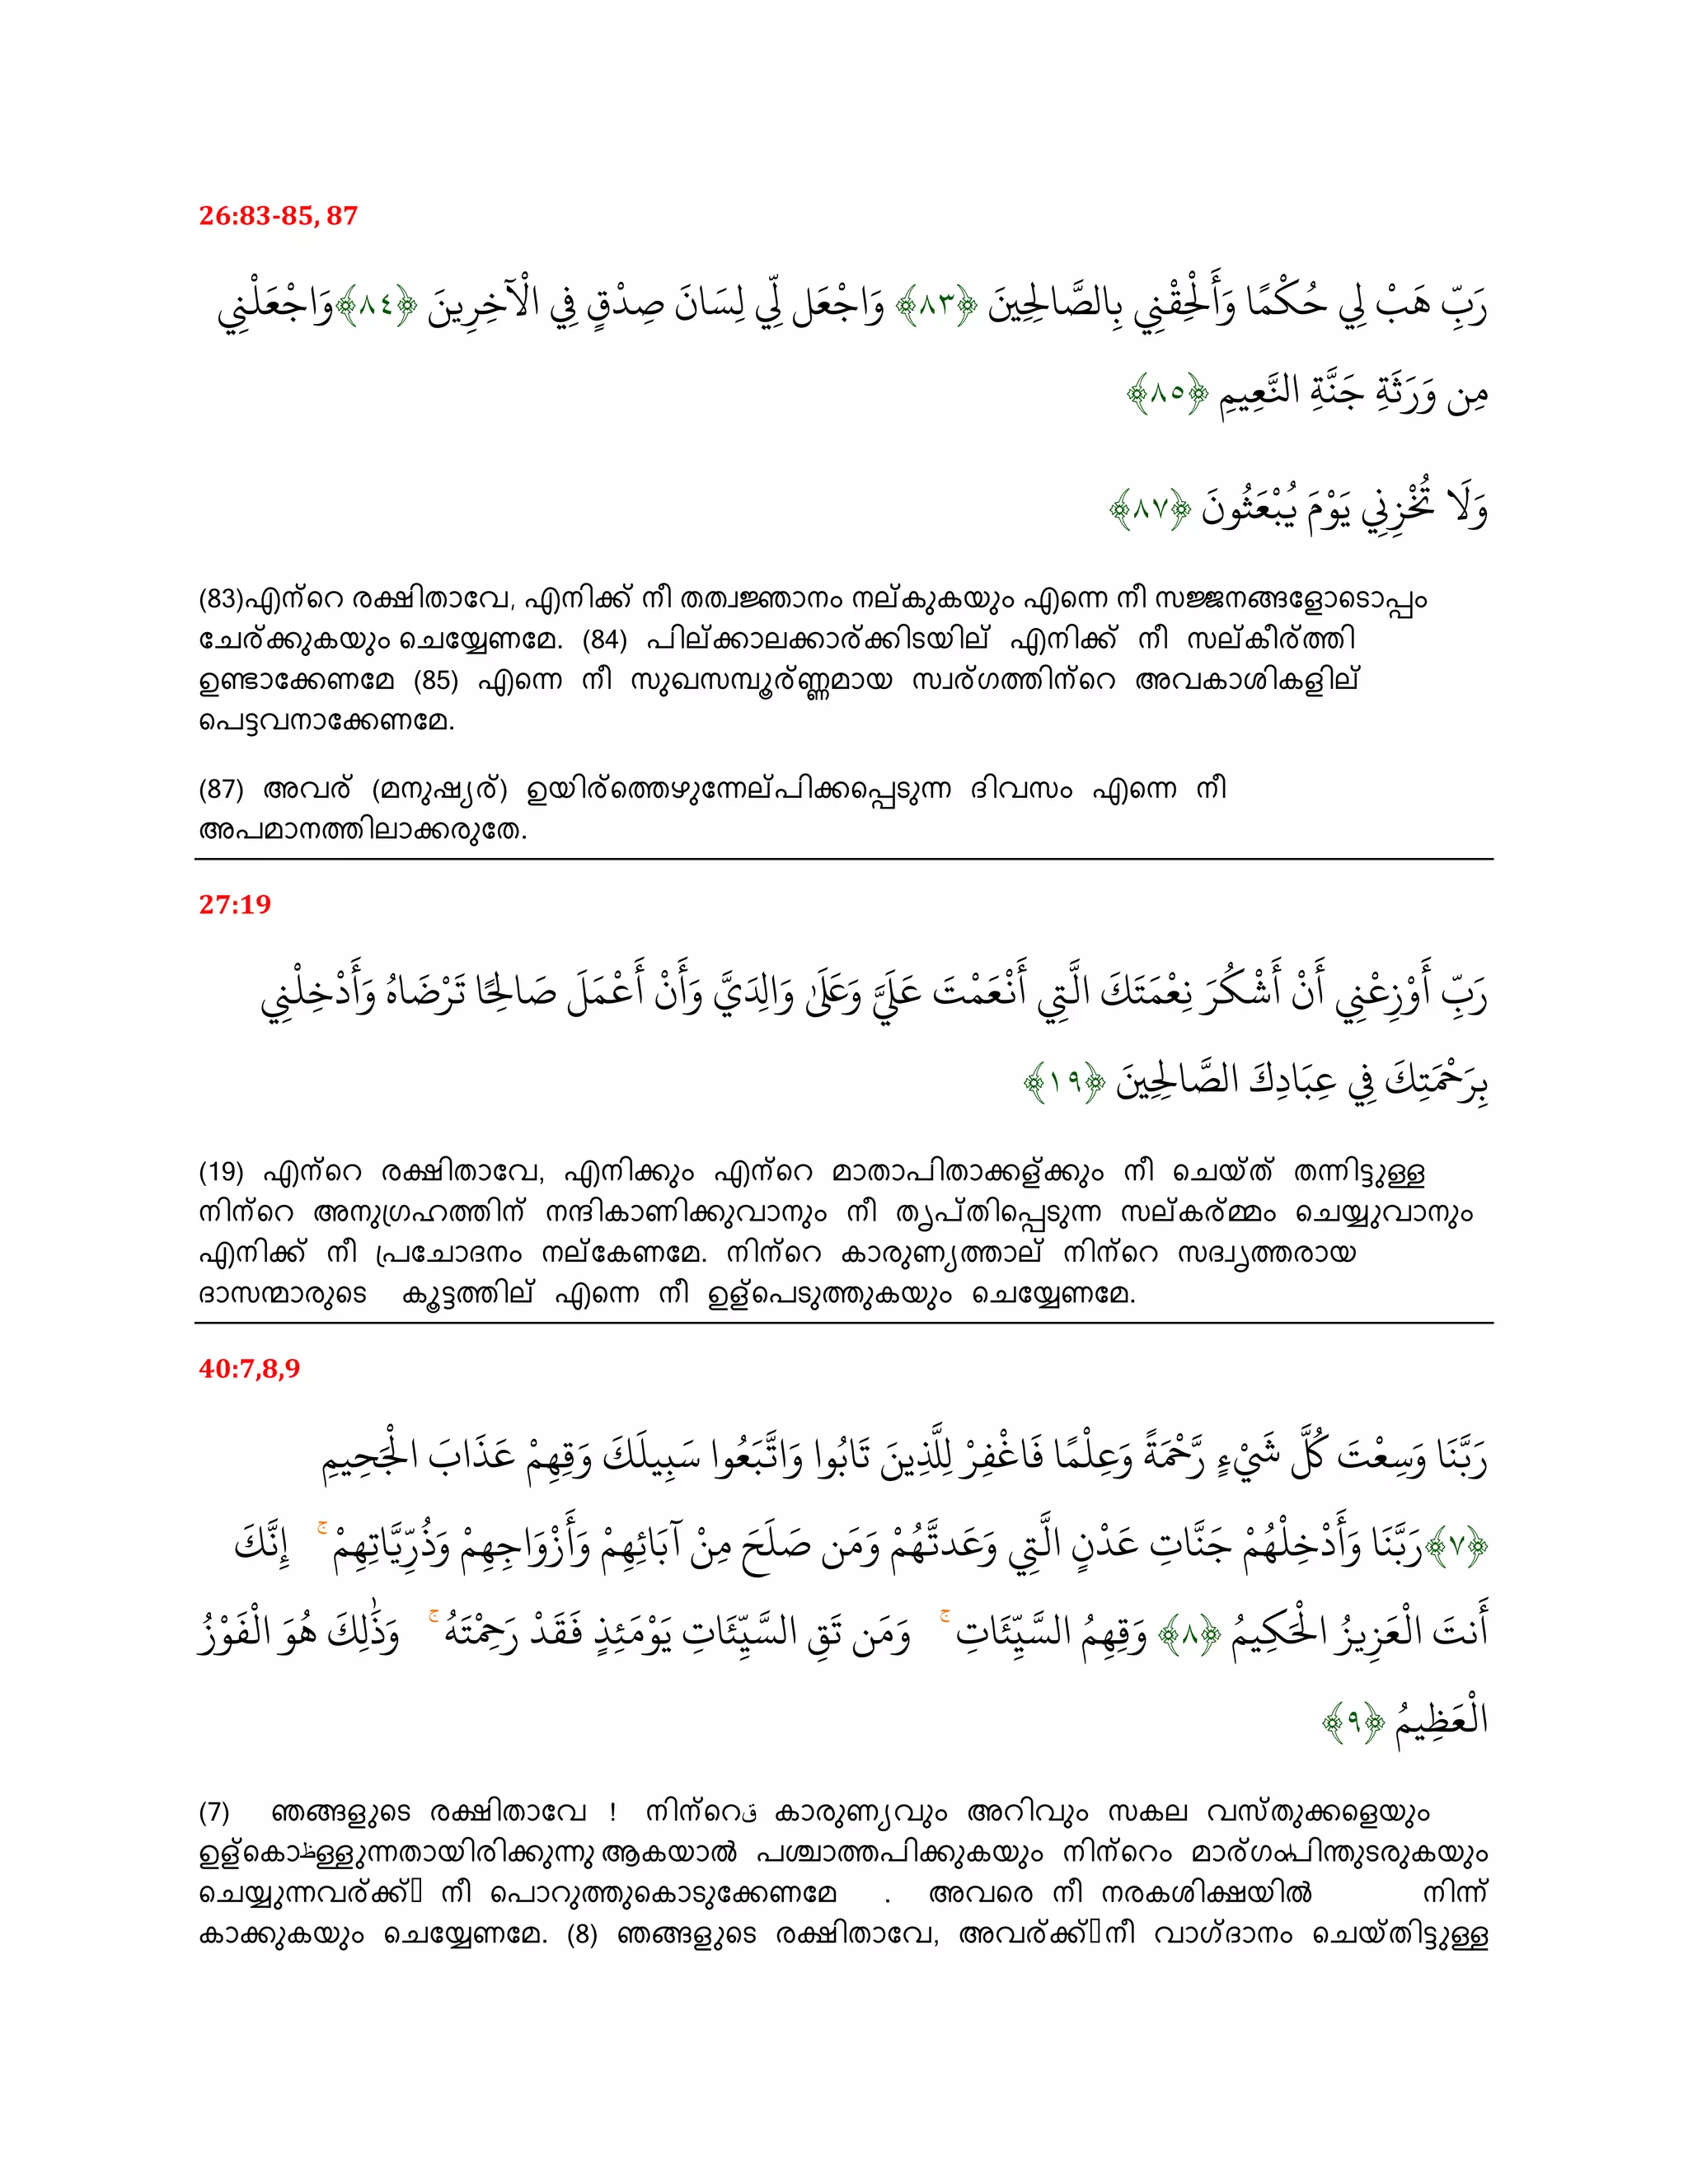 26:83-85, 87
رَبِّ هَبْ لِي حُكْمًا وَأَلْحِقْنِي بِالصَّالِحِينَ ﴿٨٣﴾ وَاجْعَل لِّي لِسَانَ صِدْقٍ فِي الْآخِرِينَ ﴿٨٤﴾وَاجْعَلْنِي
مِن وَرَثَةِ جَنَّةِ النَّعِيمِ ﴿٨٥﴾
وَلَا تُخْزِنِي يَوْمَ يُبْعَثُونَ ﴿٨٧﴾
(83)എന്റെ രക്ഷിതാവേ, എനിക്ക് നീ തത്വജ്ഞാനം നല്കുകയും എന്നെ നീ സജ്ജനങ്ങളോടൊപ്പം
ചേര്ക്കുകയും ചെയ്യേണമേ. (84) പില്ക്കാലക്കാര്ക്കിടയില് എനിക്ക് നീ സല്കീര്ത്തി
ഉണ്ടാക്കേണമേ (85) എന്നെ നീ സുഖസമ്പൂര്ണ്ണമായ സ്വര്ഗത്തിന്റെ അവകാശികളില്
പെട്ടവനാക്കേണമേ.
(87) അവര് (മനുഷ്യര്) ഉയിര്ത്തെഴുന്നേല്പിക്കപ്പെടുന്ന ദിവസം എന്നെ നീ
അപമാനത്തിലാക്കരുതേ.
27:19
رَبِّ أَوْزِعْنِي أَنْ أَشْكُرَ نِعْمَتَكَ الَّتِي أَنْعَمْتَ عَلَيَّ وَعَلَىٰ وَالِدَيَّ وَأَنْ أَعْمَلَ صَالِحًا تَرْضَاهُ وَأَدْخِلْنِي
بِرَحْمَتِكَ فِي عِبَادِكَ الصَّالِحِينَ ﴿١٩﴾
(19) എന്റെ രക്ഷിതാവേ, എനിക്കും എന്റെ മാതാപിതാക്കള്ക്കും നീ ചെയ്ത് തന്നിട്ടുള്ള
നിന്റെ അനുഗ്രഹത്തിന് നന്ദികാണിക്കുവാനും നീ തൃപ്തിപ്പെടുന്ന സല്കര്മ്മം ചെയ്യുവാനും
എനിക്ക് നീ പ്രചോദനം നല്കേണമേ. നിന്റെ കാരുണ്യത്താല് നിന്റെ സദ്വൃത്തരായ
ദാസന്മാരുടെ കൂട്ടത്തില് എന്നെ നീ ഉള്പെടുത്തുകയും ചെയ്യേണമേ.
40:7,8,9
رَبَّنَا وَسِعْتَ كُلَّ شَيْءٍ رَّحْمَةً وَعِلْمًا فَاغْفِرْ لِلَّذِينَ تَابُوا وَاتَّبَعُوا سَبِيلَكَ وَقِهِمْ عَذَابَ الْجَحِيمِ
﴿٧﴾رَبَّنَا وَأَدْخِلْهُمْ جَنَّاتِ عَدْنٍ الَّتِي وَعَدتَّهُمْ وَمَن صَلَحَ مِنْ آبَائِهِمْ وَأَزْوَاجِهِمْ وَذُرِّيَّاتِهِمْ ۚ إِنَّكَ
أَنتَ الْعَزِيزُ الْحَكِيمُ ﴿٨﴾ وَقِهِمُ السَّيِّئَاتِ ۚ وَمَن تَقِ السَّيِّئَاتِ يَوْمَئِذٍ فَقَدْ رَحِمْتَهُ ۚ وَذَٰلِكَ هُوَ الْفَوْزُ
الْعَظِيمُ ﴿٩﴾
(7) ഞങ്ങളുടെ രക്ഷിതാവേ ! നിന്റെ കാരുണ്യവും അറിവും സകല വസ്തുക്കളെയും
ഉള്കൊള്ളുന്നതായിരിക്കുന്നു ആകയാൽ പശ്ചാത്തപിക്കുകയും നിന്റെം മാര്ഗം പിന്തുടരുകയും
ചെയ്യുന്നവര്ക്ക് നീ പൊറുത്തുകൊടുക്കേണമേ . അവരെ നീ നരകശിക്ഷയിൽ നിന്ന്
കാക്കുകയും ചെയ്യേണമേ. (8) ഞങ്ങളുടെ രക്ഷിതാവേ, അവര്ക്ക് നീ വാഗ്ദാനം ചെയ്തിട്ടുള്ള